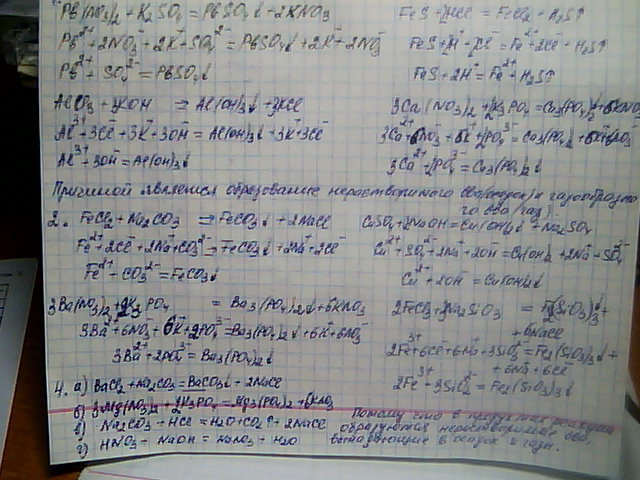 Pb(NO3)2 + K2SO4 = PbSO4↓ + 2KNO3
Pb²⁺ + 2NO3⁻ + 2K⁺ + SO4²⁻ = PbSO4↓ + 2K⁺ + 2NO3⁻
Pb²⁺ + SO4²⁻ = PbSO4↓
FeS + 2HCl = FeCl2 + H2S↑
FeS + 2H⁺ = Fe²⁺ + H2S↑
AlCl3 + 3KOH = Al(OH)3↓ + 3KCl
Al³⁺ + 3Cl⁻ + 3K⁺ + 3OH⁻ = Al(OH)3↓ + 3K⁺ + 3Cl⁻
Al³⁺ + 3OH⁻ = Al(OH)3↓
3Ca(NO3)2 + 2K3PO4 = Ca3(PO4)2↓ + 6KNO3
3Ca²⁺ + 6NO3⁻ + 6K⁺ + 2PO4³⁻ = Ca3(PO4)2↓ + 6K⁺ + 6NO3⁻
3Ca²⁺ + 2PO4³⁻ = Ca3(PO4)2↓
Причиной является образование нерастворимого св-ва(осадок) и газообразно
го в-ва (газ).
2. FeCl2 + Na2CO3 = FeCO3↓ + 2NaCl
Fe²⁺ + 2Cl⁻ + 2Na⁺ + CO3²⁻ = FeCO3↓ + 2Na⁺ + 2Cl⁻
Fe²⁺ + CO3²⁻ = FeCO3↓
CuSO4 + 2NaOH = Cu(OH)2↓ + Na2SO4
Cu²⁺ + SO4²⁻ + 2Na⁺ + 2OH⁻ = Cu(OH)2↓ + 2Na⁺ + SO4²⁻
Cu²⁺ + 2OH⁻ = Cu(OH)2↓
3Ba(NO3)2 + 2K3PO4 = Ba3(PO4)2↓ + 6KNO3
3Ba²⁺ + 6NO3⁻ + 6K⁺ + 2PO4³⁻ = Ba3(PO4)2↓ + 6K⁺ + 6NO3⁻
3Ba²⁺ + 2PO4³⁻ = Ba3(PO4)2↓
2FeCl3 + 3Na2SiO3 = Fe2(SiO3)3↓ +
+ 6NaCl
2Fe³⁺ + 6Cl⁻ + 6Na⁺ + 3SiO3²⁻ = Fe2(SiO3)3↓ +
+ 6Na⁺ + 6Cl⁻
2Fe³⁺ + 3SiO3²⁻ = Fe2(SiO3)3↓
4. а) BaCl2 + Na2CO3 = BaCO3↓ + 2NaCl
б) 3Mg(NO3)2 + 2K3PO4 = Mg3(PO4)2 + 6KNO3
в) Na2CO3 + HCl = H2O + CO2↑ + 2NaCl
г) HNO3 + NaOH = NaNO3 + H2O
Потому что в продуктах реакции
образуются нерастворимые в-ва,
выпадающие в осадок и газы.